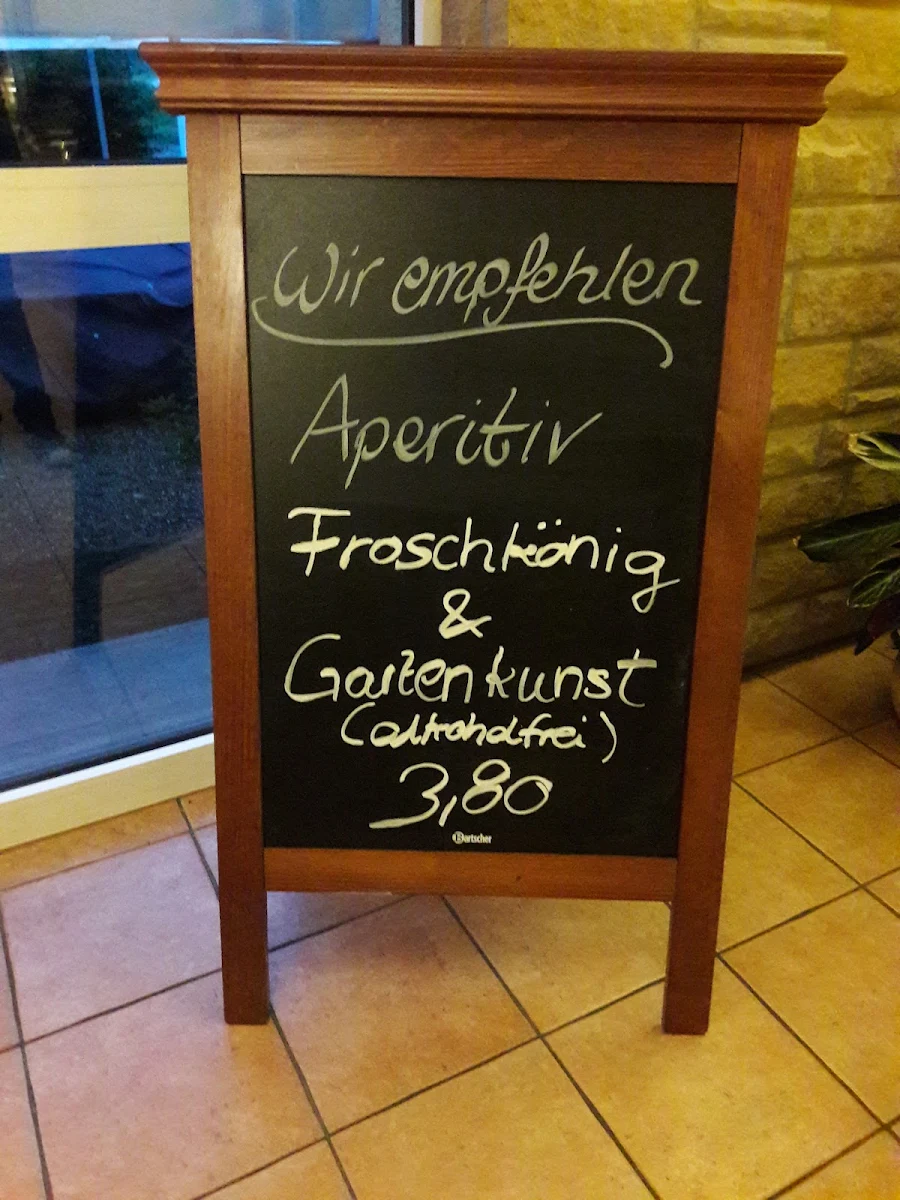 Wir empfehlen
Aperitiv
Froschkönig
&
Gartenkunst
(alkoholfrei)
3,80
Bartscher